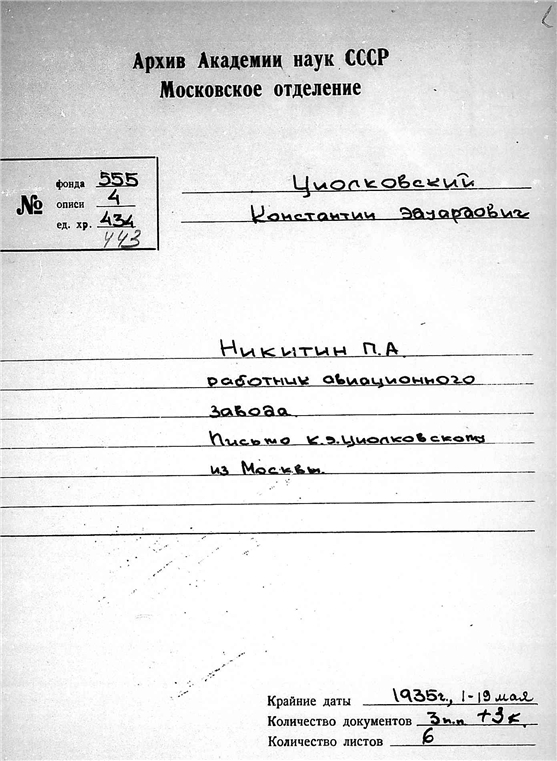 Архив Академии наук СССР
Московское отделение
№
фонда 555
описи 4
ед. хр. 434
443
Циолковский
Константин Эдуардович
Никитин П.А.
работник авиационного
завода.
Письмо К.Э.Циолковскому
из Москвы.
Крайние даты 1935г., 1-19 мая
Количество документов 3п.п +3к.
Количество листов 6